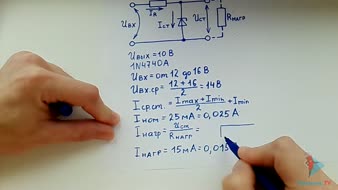 Iд
Uвх
Iст
Uст
Rнагр
Uвых=10В
1N4740A
Uвх=от 12 до 16В
Uвх.ср = 12+16/2 = 14В
Iср.ст. = Imax+Imin/2 + Imin
Iном = 25мА = 0,025 А
Iнагр = Uст/Rнагр =
Iнагр = 15мА = 0,015